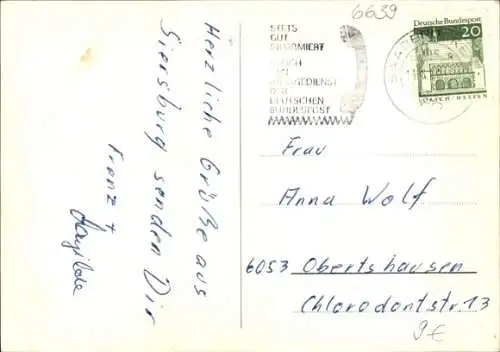 Herzliche Grüße aus
Siersburg senden Dir
Franz +
6639
STETS
GUT
INFORMIERT
DURCH
DEN
DEUTSCHEN
BUNDESPOST
Deutsche Bundespost
20
LORSCH · HESSEN
Frau
Anna Wolf
6053 Obertshausen
Chlorodontstr. 13
9€